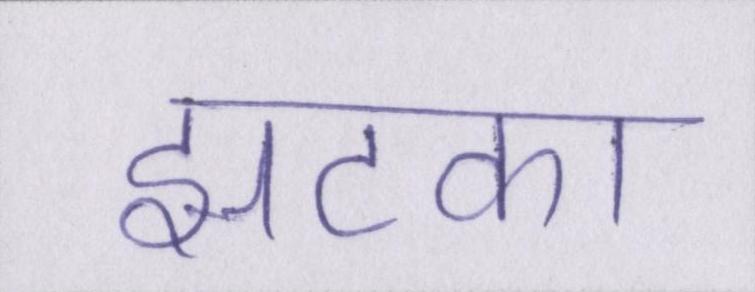 झटका